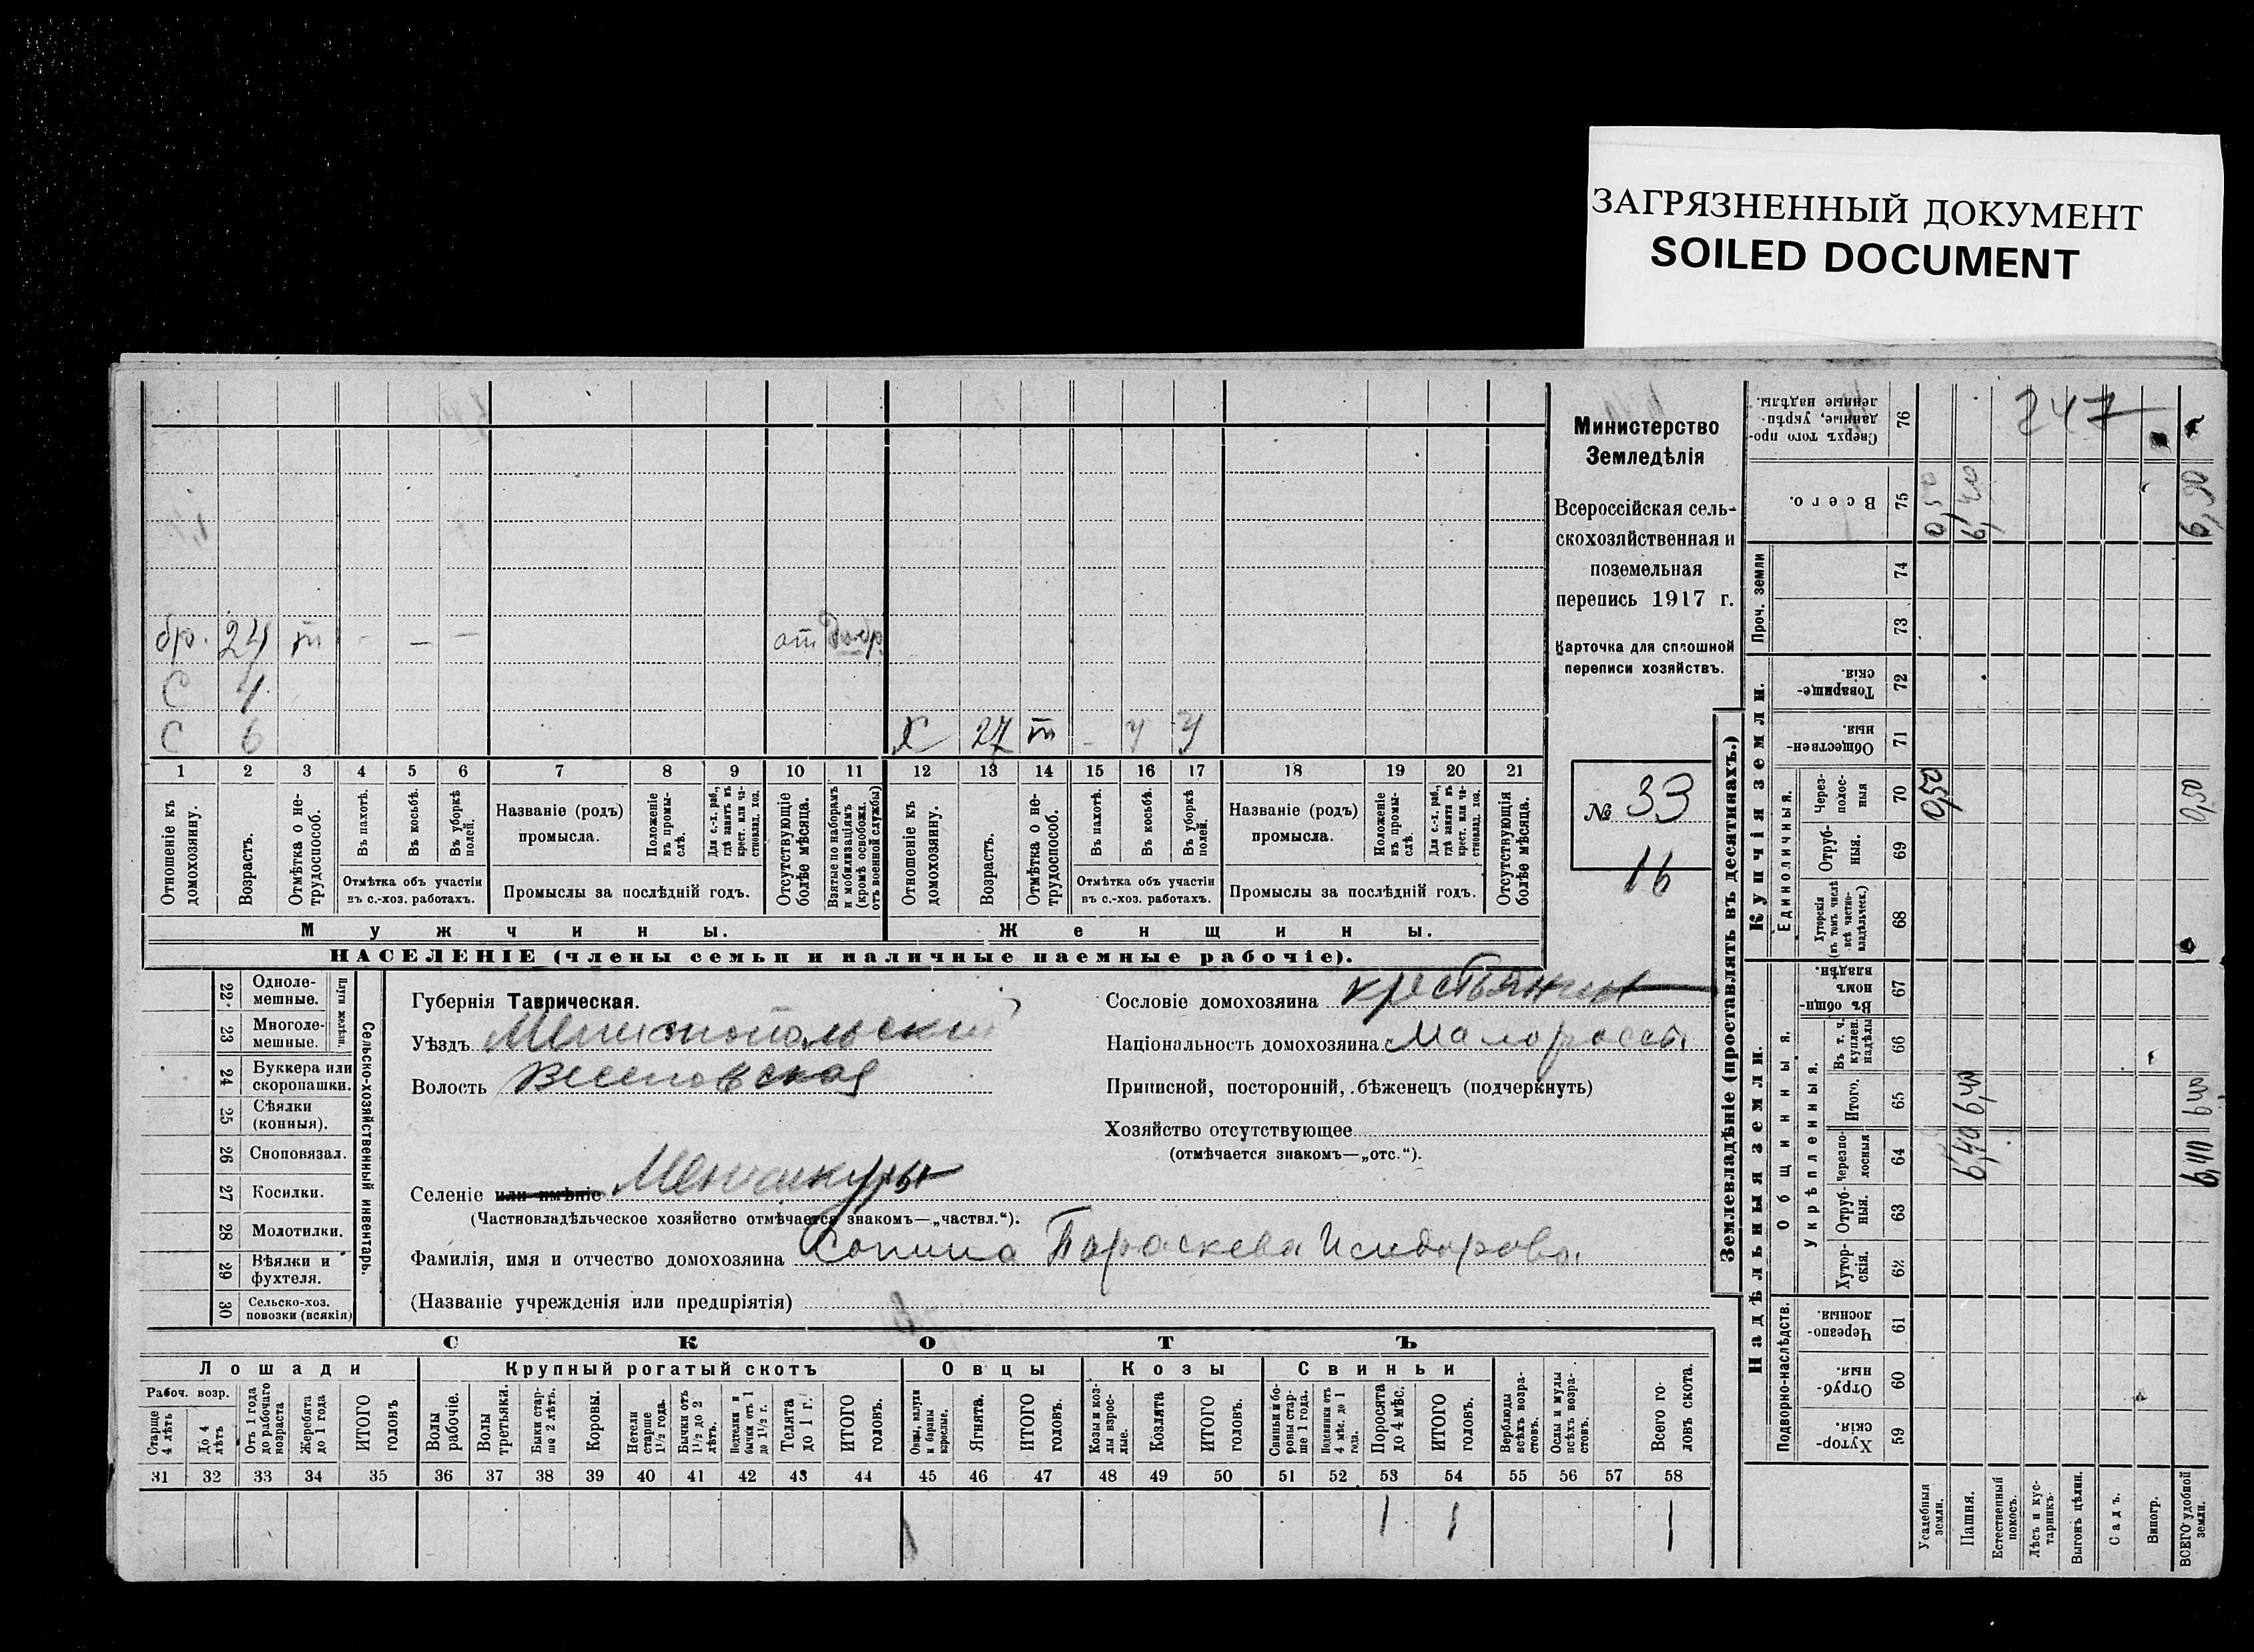 ЗАГРЯЗНЕННЫЙ ДОКУМЕНТ
SOILED DOCUMENT
Министерство
Земледѣлія
Всероссійская сель-
скохозяйственная и
поземельная
перепись 1917 г.
Карточка для сплошной
переписи хозяйствъ.
№ 33
16
бр. 24 т - - - от добр.
С 4
С 6 Х 27 т - у у
1 2 3 4 5 6 7 8 9 10 11 12 13 14 15 16 17 18 19 20 21
Отношеніе къ домохозяину.
Возрастъ.
Отмѣтка о не-трудоспособ.
Въ пахотѣ.
Въ косьбѣ.
Въ уборкѣ полей.
Отмѣтка объ участіи
въ с.-хоз. работахъ.
Названіе (родъ)
промысла.
Положеніе въ промы-слѣ.
Для с.-х. раб., гдѣ занятъ въ крест. или ча-стновлад. хоз.
Промыслы за послѣдній годъ.
Отсутствующіе болѣе мѣсяца.
Взятые по наборамъ и мобилизаціямъ (кромѣ освобожд. отъ военной службы)
Отношеніе къ домохозяину.
Возрастъ.
Отмѣтка о не-трудоспособ.
Въ пахотѣ.
Въ косьбѣ.
Въ уборкѣ полей.
Отмѣтка объ участіи
въ с.-хоз. работахъ.
Названіе (родъ)
промысла.
Положеніе въ промы-слѣ.
Для с.-х. раб., гдѣ занятъ въ крест. или ча-стновлад. хоз.
Промыслы за послѣдній годъ.
Отсутствующіе болѣе мѣсяца.
Мужчины. Женщины.
НАСЕЛЕНІЕ (члены семьи и наличные наемные рабочіе).
22 Одноле-мешные.
23 Многоле-мешные.
Плуги желѣзн.
24 Буккера или скоропашки.
25 Сѣялки (конныя).
26 Сноповязал.
27 Косилки.
28 Молотилки.
29 Вѣялки и фухтеля.
30 Сельско-хоз. повозки (всякія)
Сельско-хозяйственный инвентарь.
Губернія Таврическая.
Уѣздъ Мелитопольскій
Волость Веселовская
Селеніе или имѣніе Менчикуры
(Частновладѣльческое хозяйство отмѣчается знакомъ—„частвл.“).
Фамилія, имя и отчество домохозяина Сопина Параскева Исидорова
(Названіе учрежденія или предпріятія)
Сословіе домохозяина крестьянин
Національность домохозяина малоросс
Приписной, посторонній, бѣженецъ (подчеркнуть)
Хозяйство отсутствующее
(отмѣчается знакомъ—„отс.“).
СКОТЪ
Лошади Крупный рогатый скотъ Овцы Козы Свиньи
Рабоч. возр.
Старше 4 лѣтъ
До 4 лѣтъ
Отъ 1 года до рабочаго возраста
Жеребята до 1 года
ИТОГО головъ
Волы рабочіе.
Волы третьяки.
Быки стар-ше 2 лѣтъ.
Коровы.
Нетели старше 1½ года.
Бычки отъ 1½ до 2 лѣтъ.
Подтелки и бычки отъ 1 до 1½ г.
Телята до 1 г.
ИТОГО головъ.
Овцы, валухи и бараны взрослые.
Ягнята.
ИТОГО головъ.
Козы и коз-лы взрос-лые.
Козлята
ИТОГО головъ.
Свиньи и бо-ровы стар-ше 1 года.
Подсвинки отъ 4 мѣс. до 1 года.
Поросята до 4 мѣс.
ИТОГО головъ.
Верблюды всѣхъ возра-стовъ.
Ослы и мулы всѣхъ возра-стовъ.
Всего го-ловъ скота.
31 32 33 34 35 36 37 38 39 40 41 42 43 44 45 46 47 48 49 50 51 52 53 54 55 56 57 58
1 1 1
Землевладѣніе (проставлять въ десятинахъ.)
Надѣльныя земли. Купчія земли. Проч. земли
Подворно-наслѣдств.
Общинныя.
Укрѣпленныя.
Единоличныя.
Сверхъ того про-данные, укрѣп-ленные надѣлы. 76 247
Всего. 75 0,50 6,40 6,90
74
73
Товарище-скія. 72
Обществен-ныя. 71
Через-полос-ныя 70 0,50 0,50
Отруб-ныя. 69
Хуторскія (въ томъ числѣ всѣ частно-владѣльческ.) 68
Въ общин-номъ владѣн. 67
Въ т. ч. куплен. надѣлы 66
Итого. 65 6,40
Черезпо-лосныя 64 6,40 6,40
Отруб-ныя. 63
Хутор-скія. 62
Черезпо-лосныя 61
Отруб-ныя. 60
Хутор-скія. 59
Усадебныя земли.
Пашня.
Естественный покосъ.
Лѣсъ и кус-тарникъ.
Выгонъ цѣлин.
Садъ.
Виногр.
ВСЕГО удобной земли.